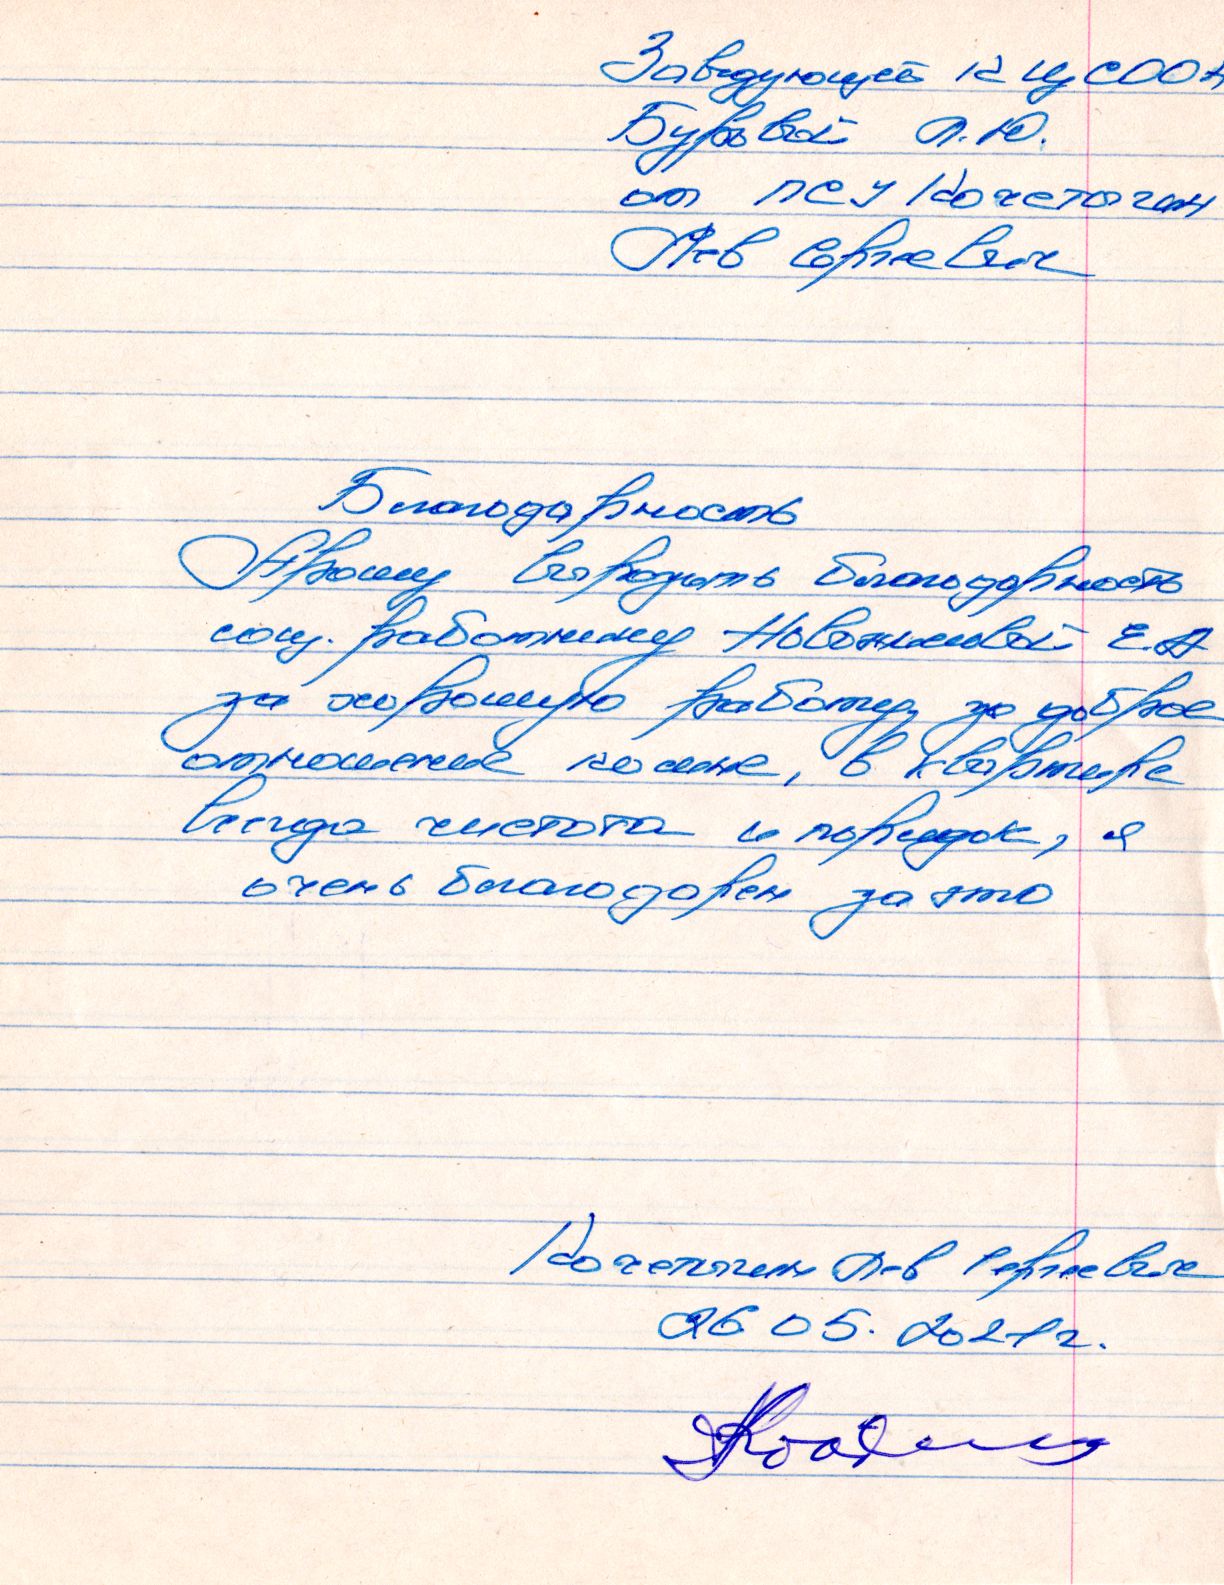 Заведующей КЦСООН
Буровой Л.Ю.
от ПСУ Кочетыгин
Лев Сергеевич
Благодарность
Прошу выразить благодарность
соц. работнику Е.А
за хорошую работу, за доброе
отношение ко мне, в квартире
всегда чистота и порядок, я
очень благодарен за это
Кочетыгин Лев Сергеевич
26 05. 2021г.